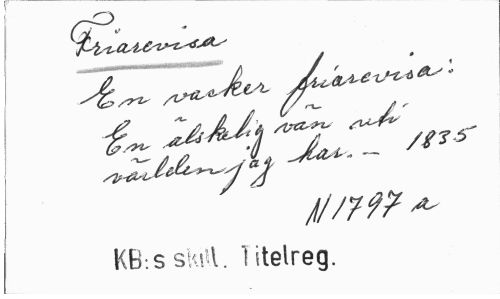 Friarevisa
En vacker friarevisa:
En älskelig vän uti
världen jag har. — 1835
N 1797 a
KB:s skill. Titelreg.